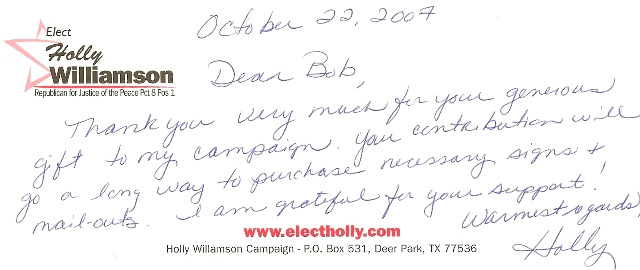 October 22, 2007
Elect
Holly
Williamson
Republican for Justice of the Peace Pct 8 Pos 1
Dear Bob,
Thank you very much for your generous
gift to my campaign. Your contribution will
go a long way to purchase necessary signs +
mail-outs. I am grateful for your support!
Warmest regards,
Holly
www.electholly.com
Holly Willamson Campaign - P.O. Box 531, Deer Park, TX 77536